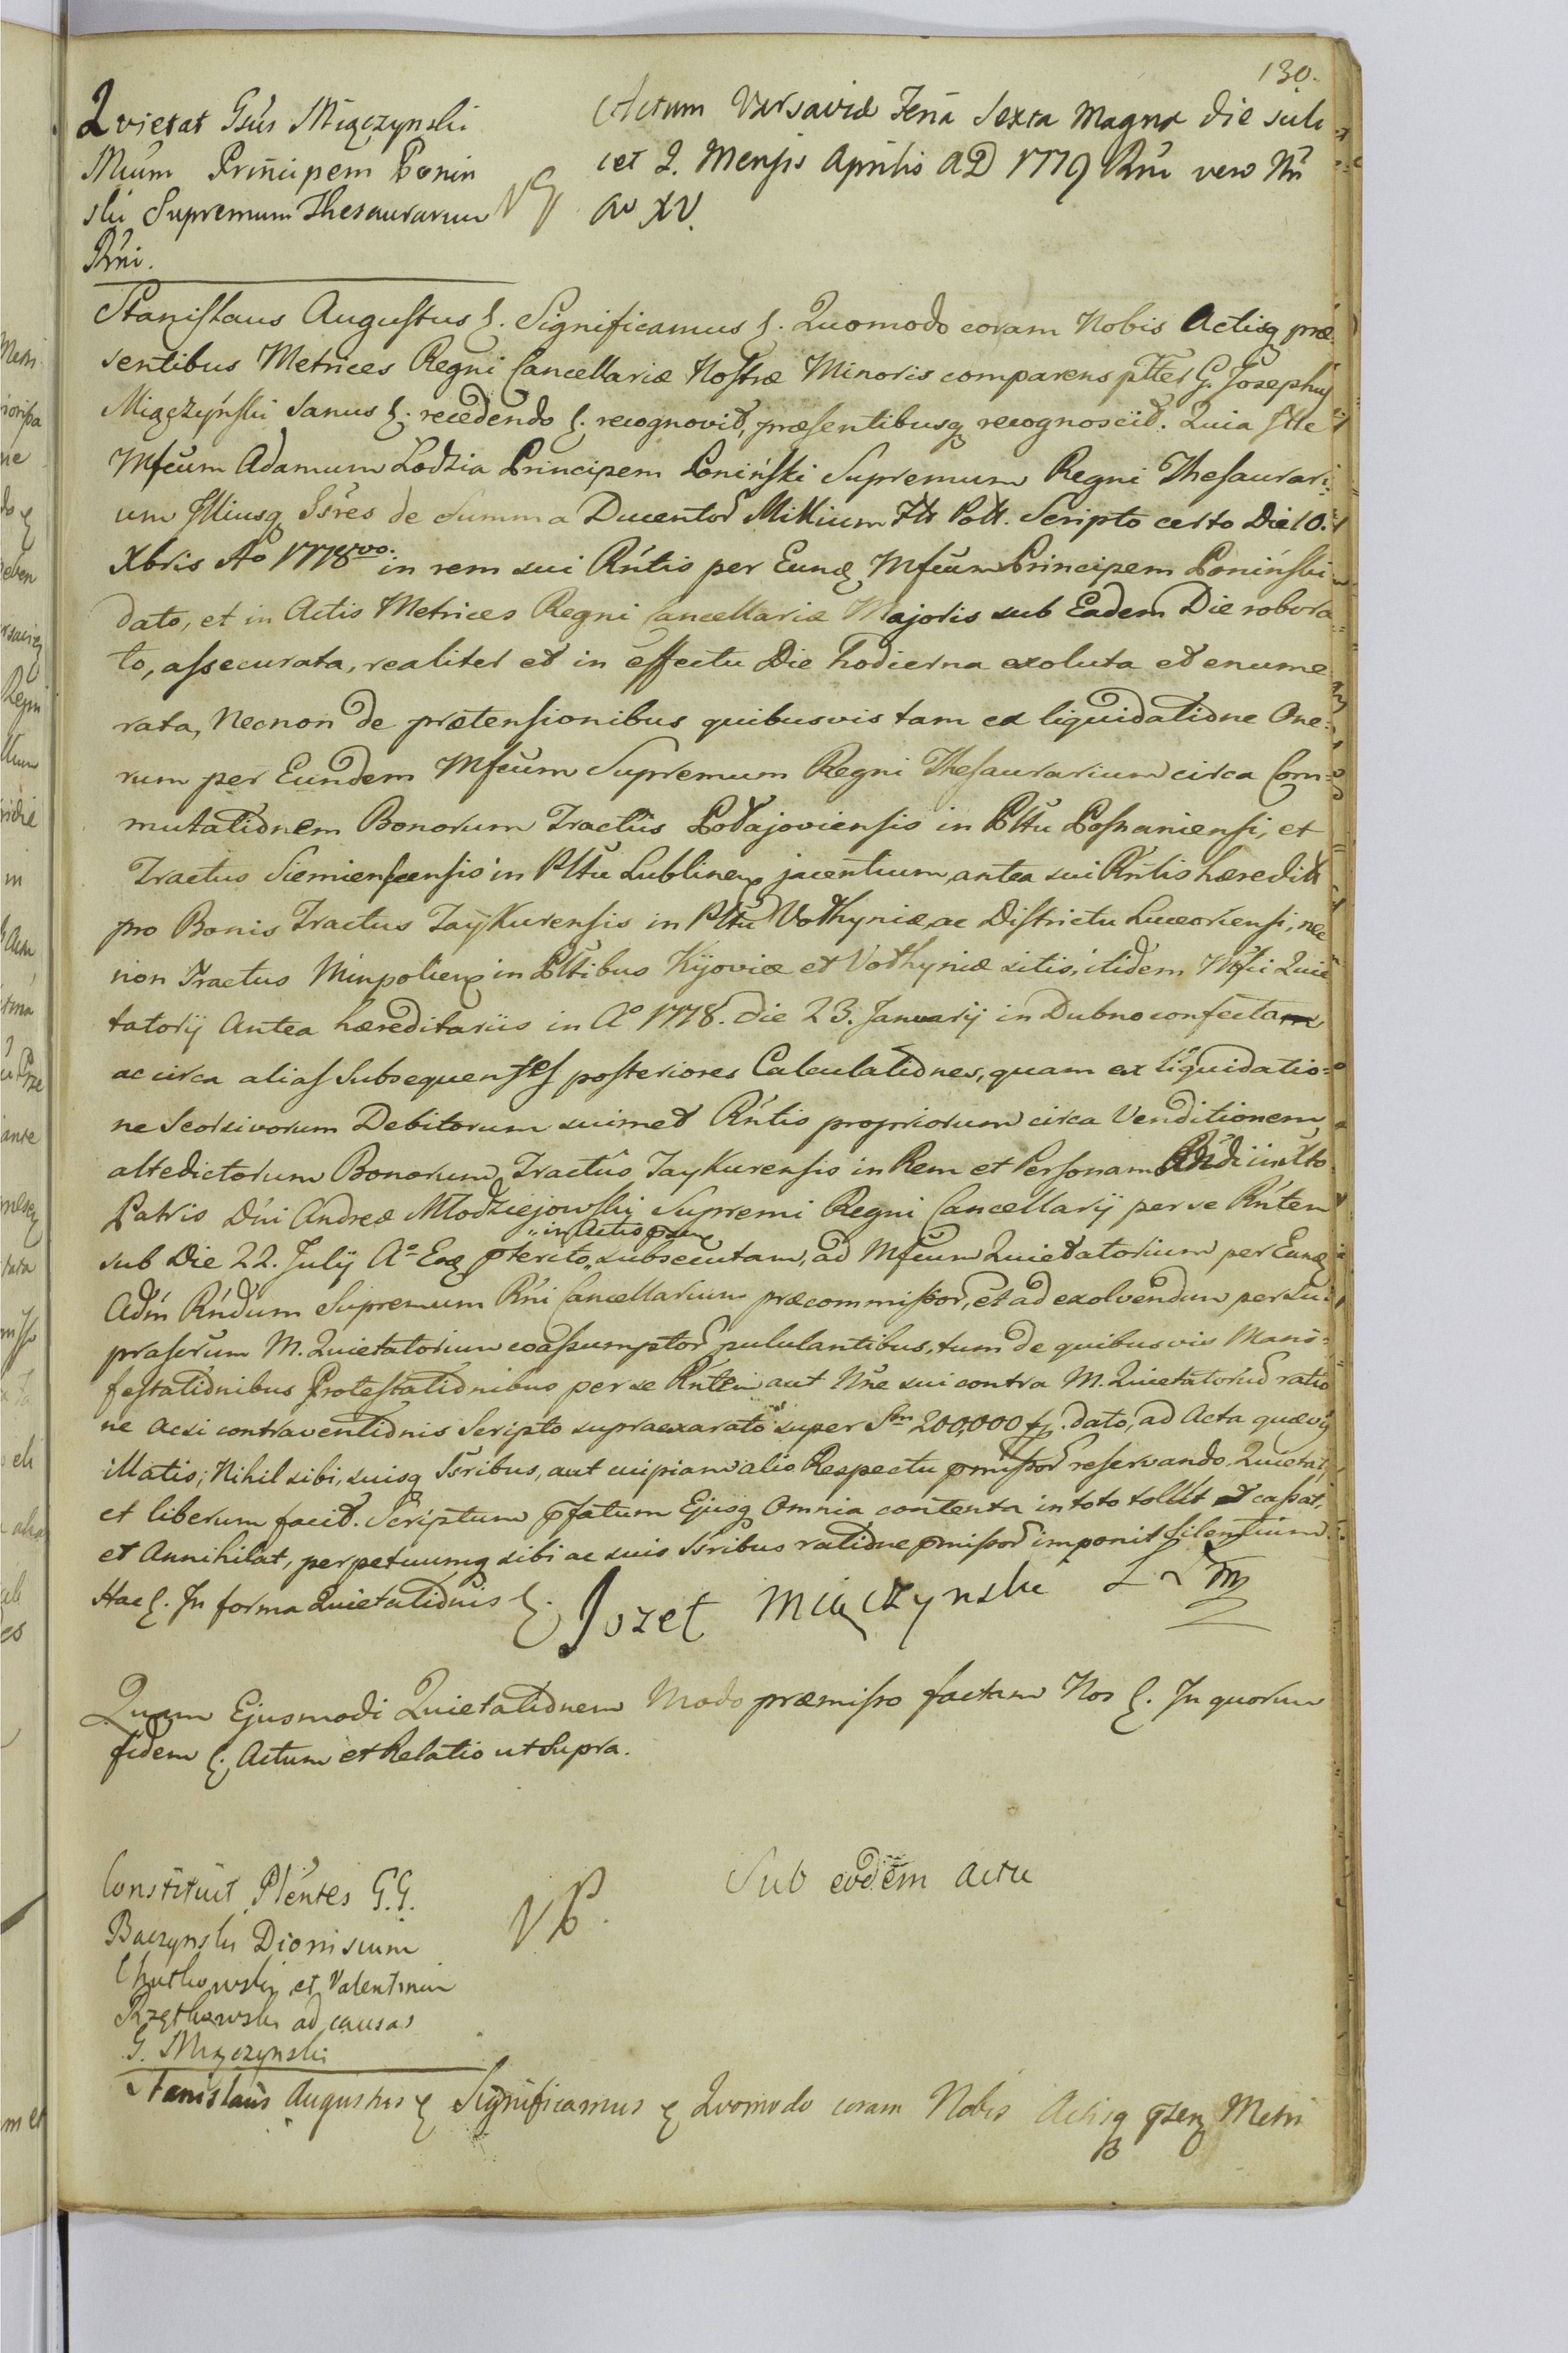 130.
Quietat Gsus Miączynski
Mcum Principem Ponin
ski Supremum Thesaurarium
Rni.
Actum Varsaviæ Feria Sexta Magna die scili
cet 2. Mensis Aprilis AD 1779 Rni vero Nri
Ao XV.
Stanislaus Augustus &. Significamus &. Quomodo coram Nobis Actisq præ
sentibus Metrices Regni Cancellariæ Nostræ Minoris comparens plter G. Josephus
Miączyński Sanus &. recedendo &. recognovit, præsentibusq recognoscit. Quia Ille
Mfcum Adamum Lodzia Principem Poniński Supremum Regni Thesaurari-
um Illiusq Ssres de Summa Ducentor Millium Fll Poll. Scripto certo Die 10.
Xbris Ao 1778vo. in rem sui Rntis per Eund Mfcum Principem Poniński
dato, et in Actis Metrices Regni Cancellariæ Majoris sub Eadem Die robora
to, assecurata, realiter et in effectu Die hodierna exoluta et enume
rata, Necnon de prætensionibus quibusvis tam ex liquidatione One-
rum per Eundem Mfcum Supremum Regni Thesaurarium circa Com-
mutationem Bonorum Tractus Potajoviensis in Pltu Posnaniensi, et
Tractus Siemiensensis in Pltu Lublinen jacentium, antea sui Rntis hæredit
pro Bonis Tractus Taykurensis in Pltu Volhyniæ, ac Districtu Luceoriensi, nec
non Tractus Minpolien in Pltibus Kijoviæ et Volhyniæ sitis, itidem Mfci Quie
tatorij Antea hæreditariis in Ao 1778. die 23. Januarij in Dubno confecta
ac circa alias Subsequentes posteriores Calculationes, quam ex liquidatio-
ne Seorsivorum Debitorum suimet Rntis propriorum circa Venditionem
altedictorum Bonorum Tractus Taykurensis in Rem et Personam Rndi in Xto
Patris Dni Andreæ Młodziejowski Supremi Regni Cancellarij per se Rntem
in Actis præn
sub Die 22. Julij Ao Eod pterito, subsecutam, ad Mfcum Quietatorium per Eund
Adm Rndum Supremum Rni Cancellarium præcommissor, et ad exolvendum per su-
prafatum M. Quietatorium coassumptor pululantibus, tum de quibusvis Mani-
festationibus Protestationibus per se Rntem aut Nne sui contra M. Quietatorium ratio
ne acsi contraventionis Scripto supraexarato super Sm 200,000 fl. dato, ad Acta quævis
illatis; Nihil sibi, suisq Ssribus, aut cuipiam alio Respectu pmissor reservando, Quietat,
et liberum facit. Scriptum pfatum Ejusq Omnia contenta in toto tollit et cassat,
et Annihilat, perpetuumq sibi ac suis Ssribus ratione pmissor imponit Silentium.
Hac &. In forma Quietationis &. Jozef Miączynski
Quam Ejusmodi Quietationem Modo præmisso factam Nos &. In quorum
fidem &. Actum et Relatio ut Supra.
Constituit Plentes G.G.
Baczynski Dionisium
Chutkowski et Valentinum
Rzętkowski ad causas
G. Miączynski
Sub eodem actu
Stanislaus Augustus & Significamus & Quomodo coram Nobis Actisq præn Metri